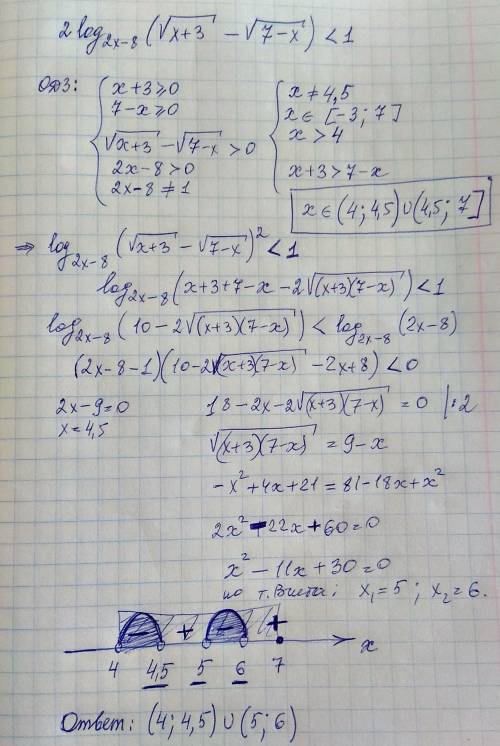 2 log_{2x-8} (√(x+3) - √(7-x)) < 1
ОДЗ: { x+3 ≥ 0
7-x ≥ 0
√(x+3) - √(7-x) > 0
2x-8 > 0
2x-8 ≠ 1
{ x ≠ 4,5
x ∈ [-3; 7]
x > 4
x+3 > 7-x
x ∈ (4; 4,5) ∪ (4,5; 7]
⇒ log_{2x-8} (√(x+3) - √(7-x))² < 1
log_{2x-8} (x+3+7-x-2√((x+3)(7-x))) < 1
log_{2x-8} (10-2√((x+3)(7-x))) < log_{2x-8} (2x-8)
(2x-8-1)(10-2√((x+3)(7-x)) -2x+8) < 0
2x-9=0
x=4,5
18-2x-2√((x+3)(7-x)) = 0 |:2
√((x+3)(7-x)) = 9-x
-x²+4x+21 = 81-18x+x²
2x²-22x+60=0
x²-11x+30=0
по т. Виета: x₁=5; x₂=6.
- + - +
4 4,5 5 6 7 x
Ответ: (4; 4,5) ∪ (5; 6)